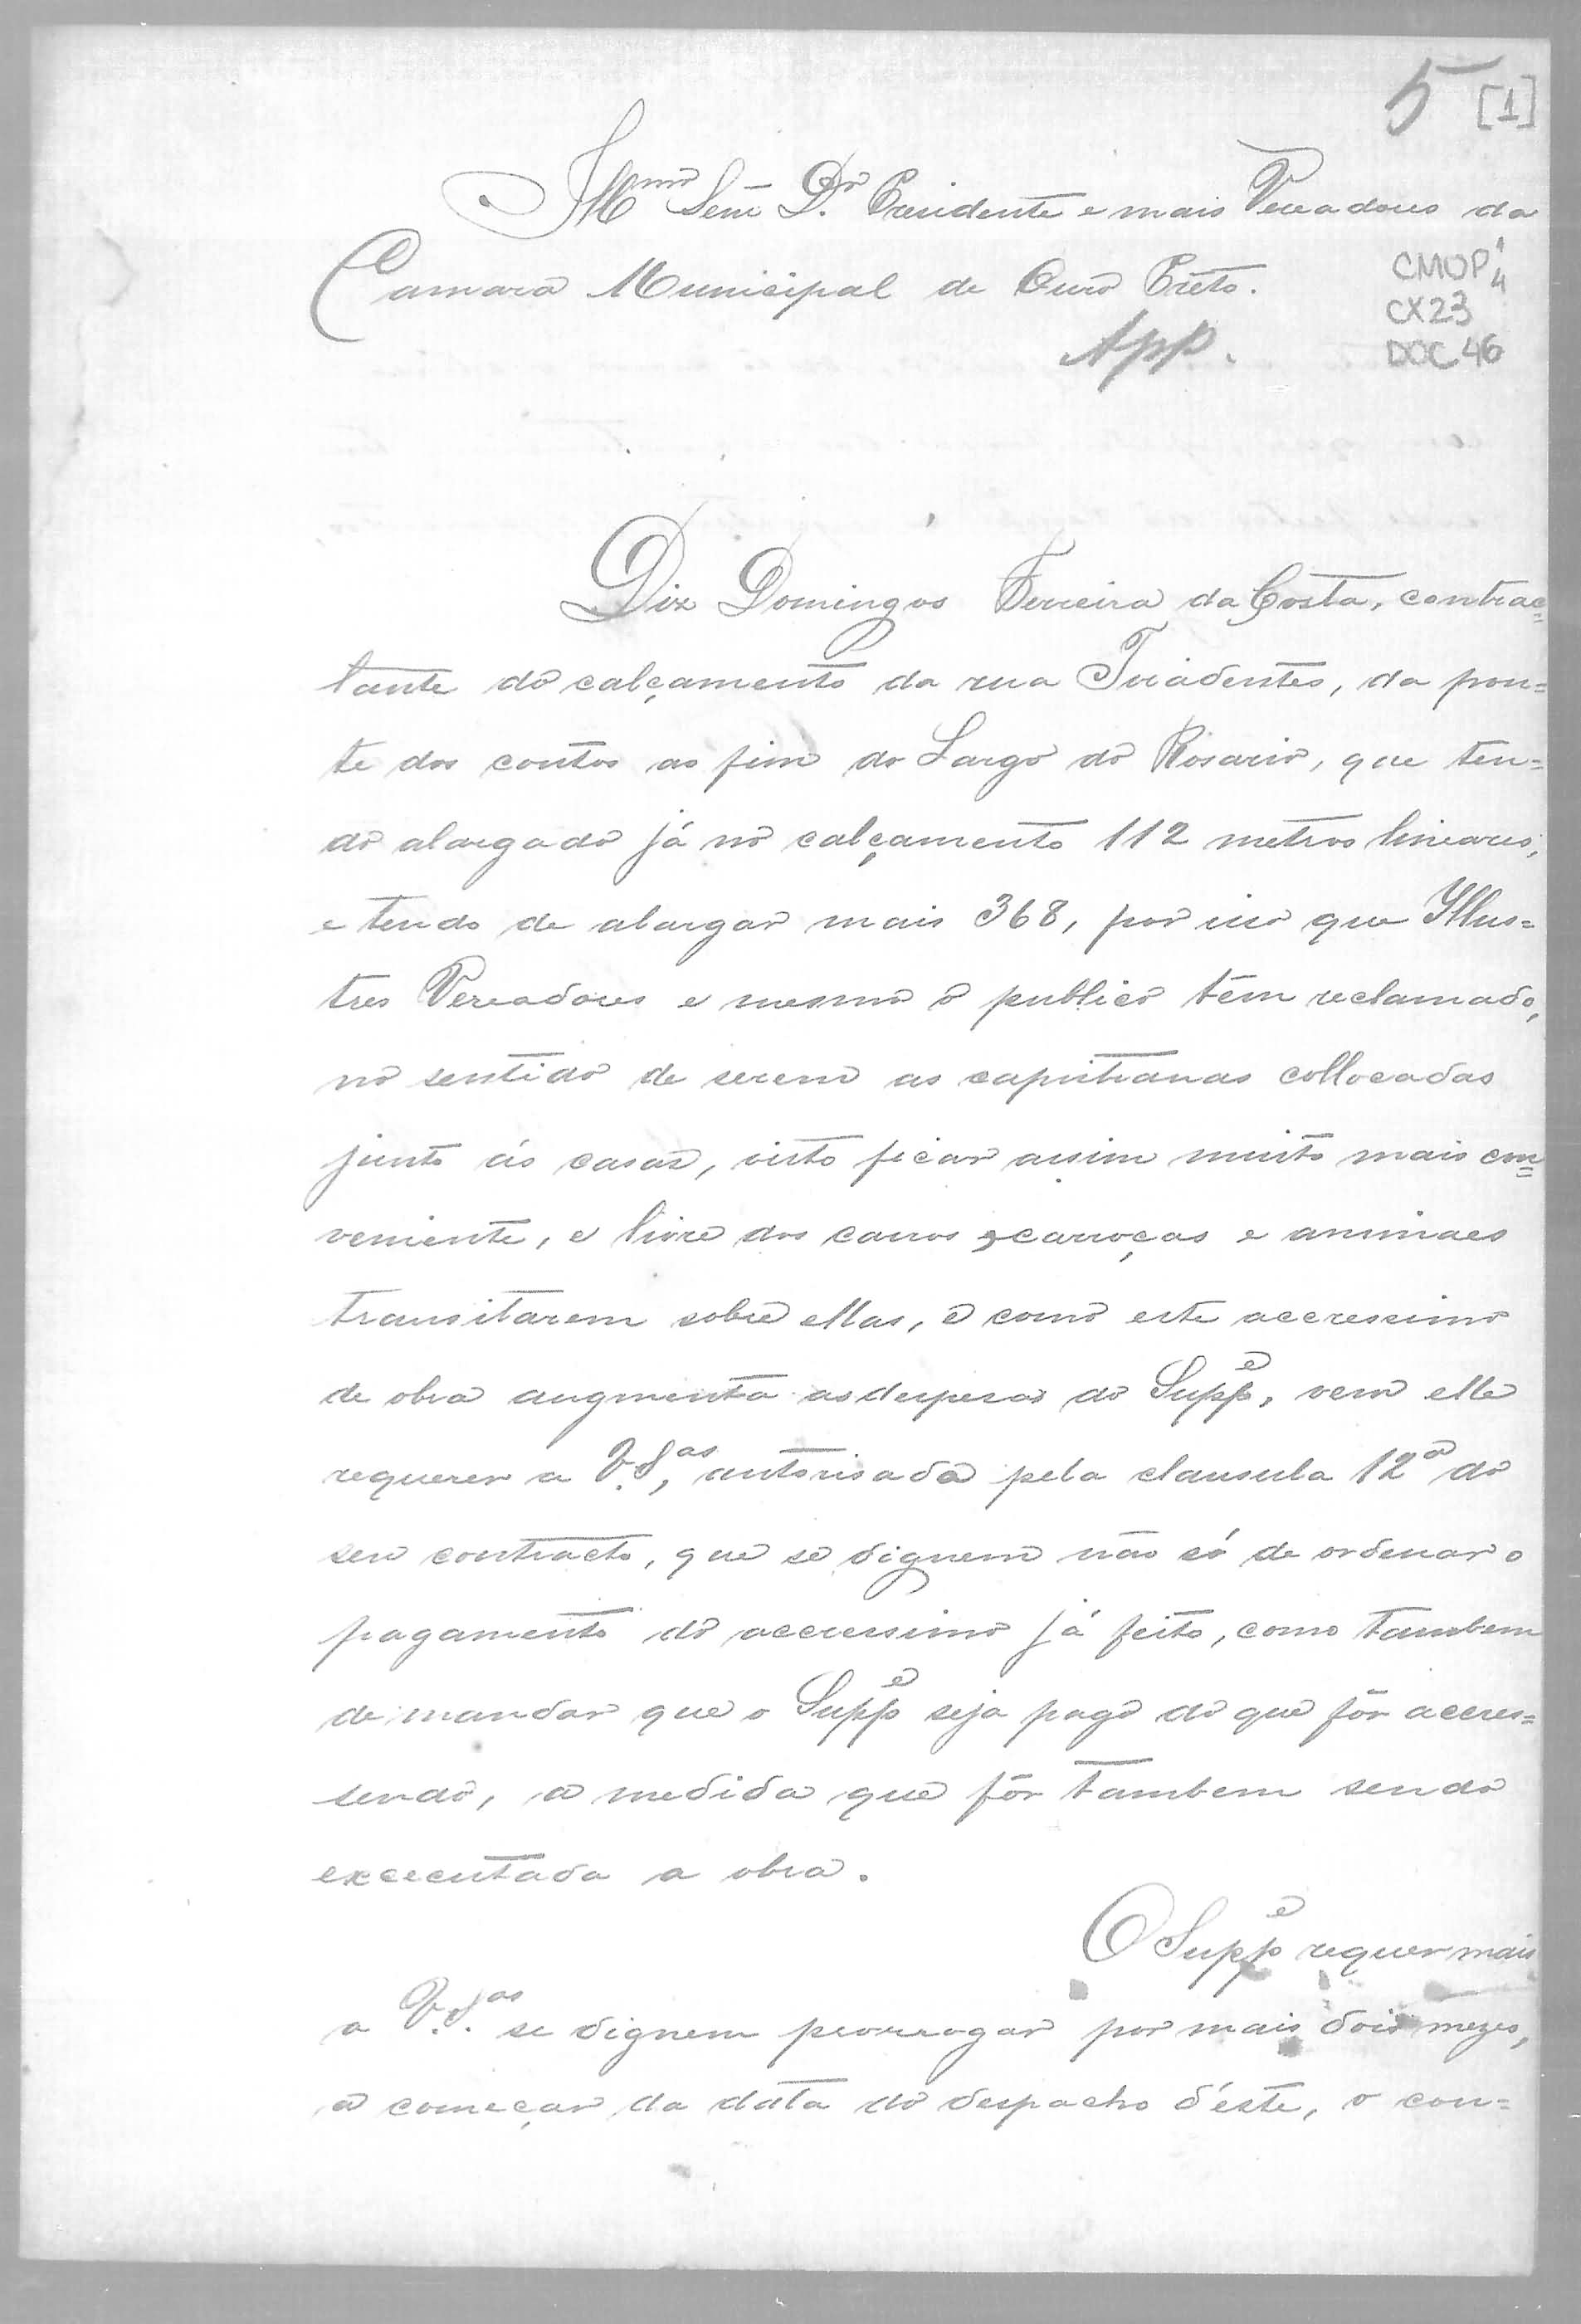 5 [1]
Illmo Senr Dr. Presidente e mais Vereadores da
Camara Municipal de Ouro Preto.
CMOP 1/4
CX23
DOC 46
App.
Diz Domingos Ferreira da Costa, contrac=
tante do calçamento da rua Tiradentes, da pon=
te dos contos ao fim do Largo do Rosario, que ten=
do alargado já no calçamento 112 metros lineares,
e tendo de alargar mais 368, por isso que Illus=
tres Vereadores e mesmo o publico têm reclamado,
no sentido de serem as capistranas collocadas
junto ás casas, visto ficar assim muito mais con=
veniente, e livre dos carros, carroças e animaes
transitarem sobre ellas, e como este accressimo
de obra augmenta as despesas do Suppe, vem elle
requerer a V. Sas, autorisado pela clausula 12a do
seu contracto, que se dignem não só de ordenar o
pagamento do accressimo já feito, como tambem
de mandar que o Suppe seja pago do que fôr acces=
sendo, a medida que fôr tambem sendo
excecutada a obra.
O Suppe requer mais
a V. Sas se dignem prorrogar por mais dois mezes,
a começar da data do despacho d'éste, o con=